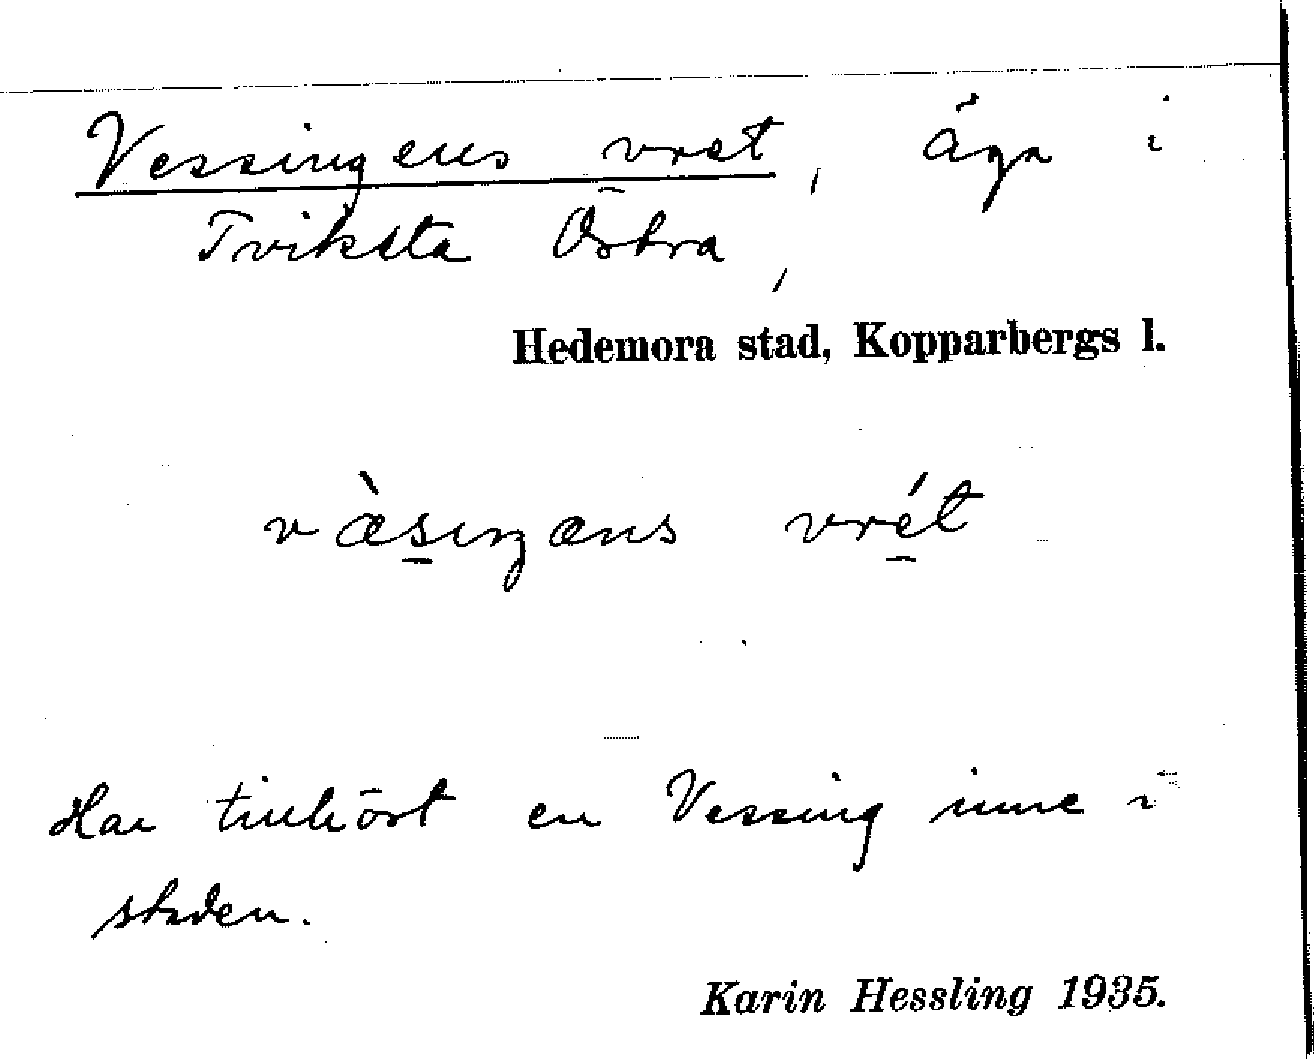 Vessingens vret, äga i
Tviksta Östra,
Hedemora stad, Kopparbergs l.
væ̀sıŋæns vrét
Har tillhört en Vessing inne i
staden.
Karin Hessling 1935.